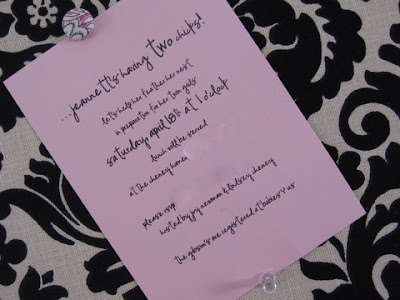 ...jeannett's having two chicks!
let's help her feather her nest
in preparation for her twin girls
saturday april 18th at 1 o'clock
lunch will be served
at the cheney home
please rsvp
hosted by joy newman & lindsey cheney
the gibsons are registered at babies r us